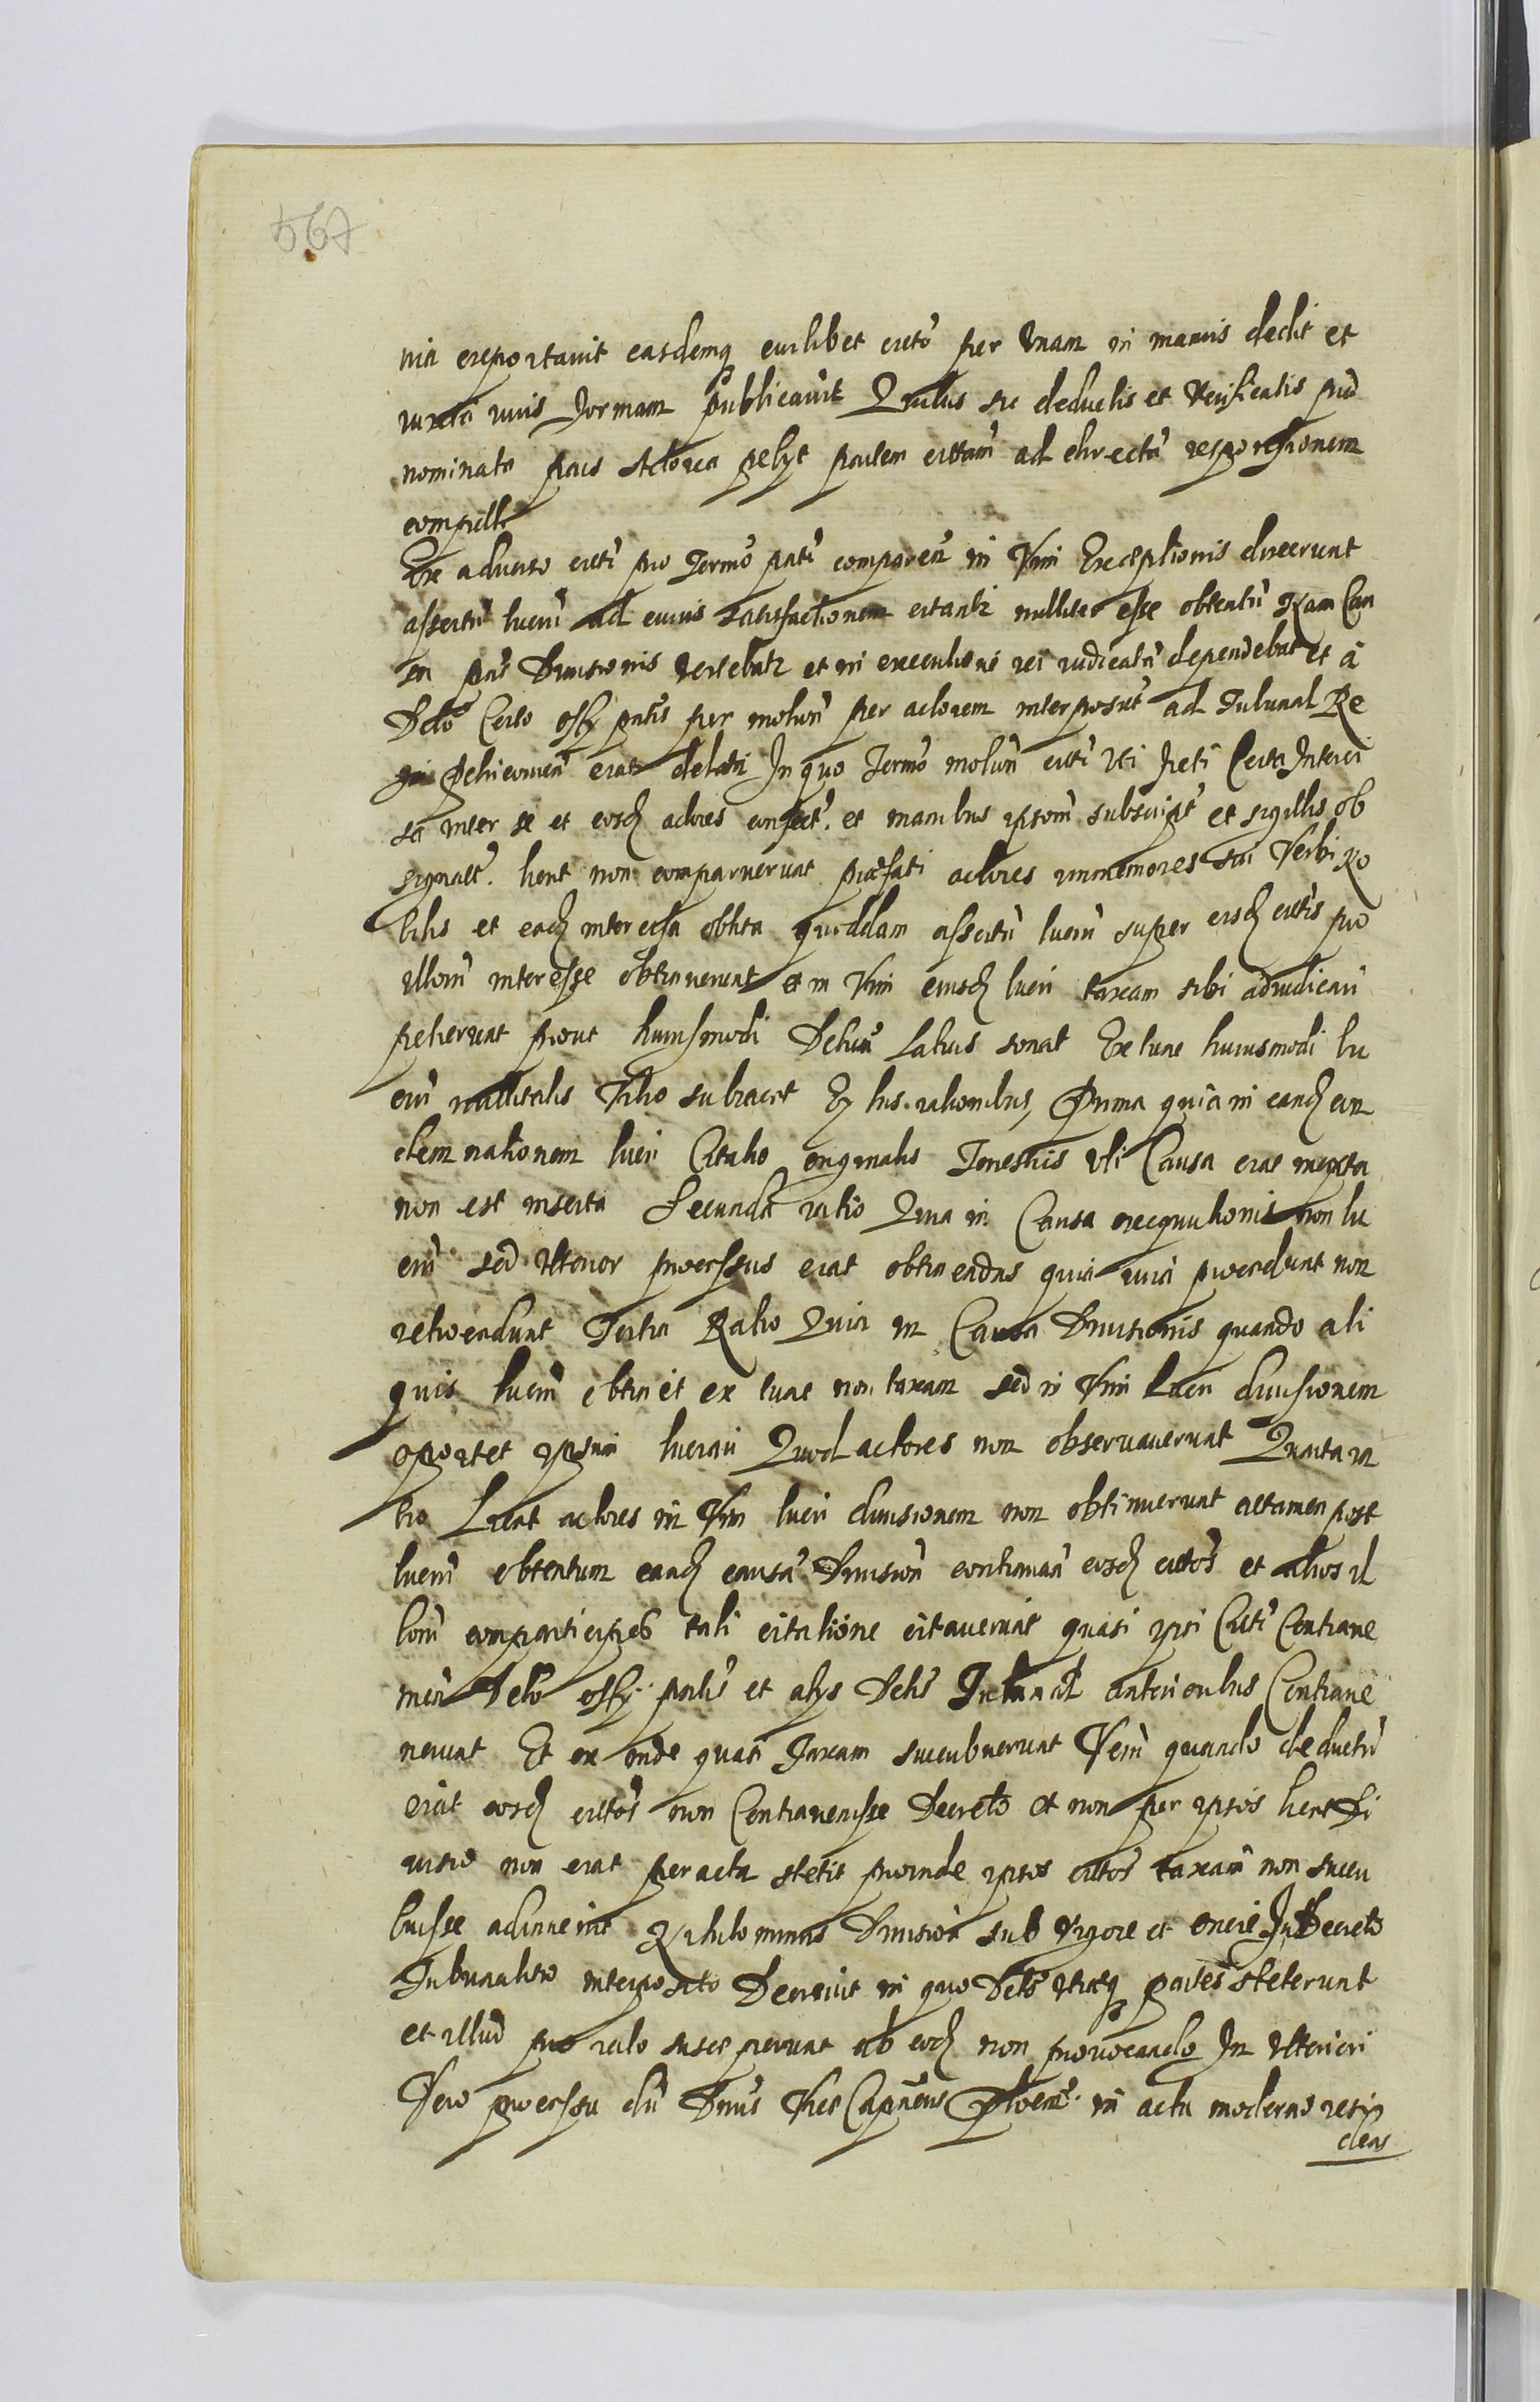 567
nia ereportavit easdemq cuilibet citto per Unam in manus dedit et
iuxta iuris formam publicavit Quibus sic deductis et Verificatis præ
nominata pars Actorea petyt partem cittam ad directa responsionem
compelli
Ex adverso citti pro Termo pnti comparen in Vim Exceptionis dixerunt
assertu lucru ad cuius satisfactionem citantr nulliter esse obtentu Nam Cau
sa pns Divisionis Vertebatr et in executione rei iudicata dependebat et à
Dcto Certo offy pntis per motion per actorem interposit ad Tribunal Re
gni Petricovien erat delata In quo Termo motion citti Vti freti Certa Interci
sa inter se et eosd actores confect. et manibus ipsom subscript et sigillis ob
signat. licet non comparuerunt præfati actores immemores sui Verbi No
bilis et eacd intercisa oblita quoddam assertu lucru super eisd cittis pro
illom interesse obtinuerunt et in Vim eiusd lucri taxam sibi adiudicari
petierunt prout huiusmodi Dctum Latius sonat Ex tunc huiusmodi lu
cru nullitatis Vitio subiacet Ex his rationibus, Prima quia in eand con
demnationem lucri Citatio originalis Terrestris Vti Causa erat incepta
non est inserta Secunda ratio Quia in Causa execquutionis non lu
cru sed Vlterior processus erat obtinendus quia iura procedunt non
retrocedunt Tertia Ratio Quia in Causa Divisionis quando ali
quis lucru obtinet ex tunc non taxam sed in Vim Lucri divisionem
oportet ipsum lucrari Quod actores non observaverunt Quarta ra
tio Licet actores in Vim lucri divisionem non obtinuerunt attamen post
lucru obtentum eand causa Division continuan eosd cittos et alios il
lom comparticipes tali citatione citaverunt quasi ipsi Citti Contrave
nien Dcto offy pntis et alys Dctis Tribunal anterioribus Contrave
nerunt Et ex onde quasi Taxam succubuerunt Veru quando deductu
erat eosd cittos non Contravenisse Decreto et non per ipsos licet Di
visio non erat peracta stetit proinde ipsos cittos taxam non succu
buisse adinvenit Nihilominus Division sub Vigore et onere In Decreto
Tribunalitio interposito Decrevit in quo Dcto Vtraq partes steterunt
et illud pro rato susceperunt ab eod non provocando In Vlteriori
Vero processu du Dnus Vice Capneus Plocen. in actu moderno resi
dens